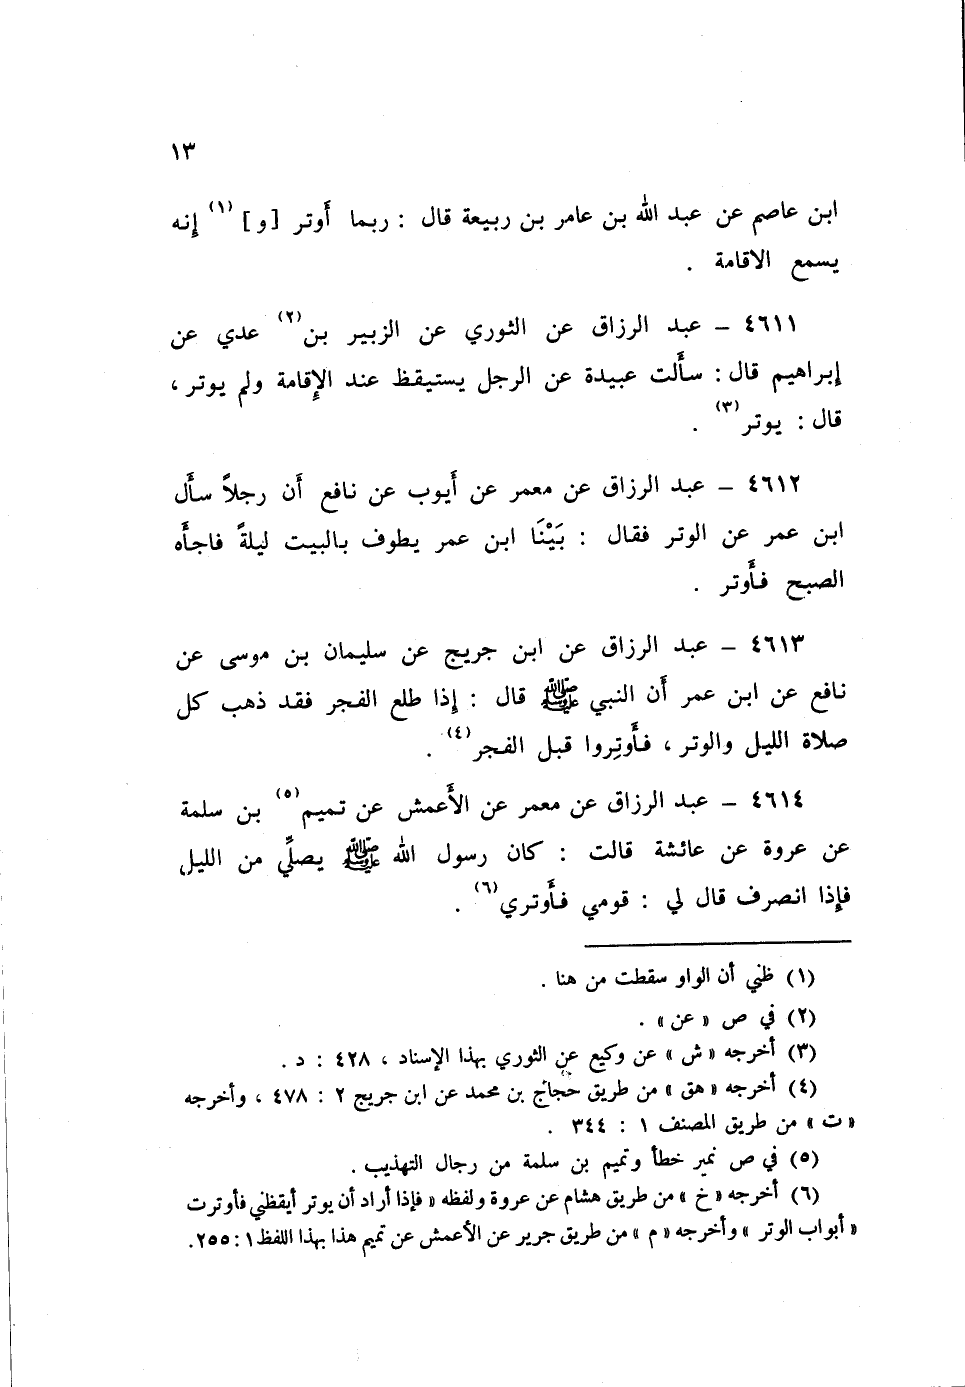 ١٣
ابن عاصم عن عبد الله بن عامر بن ربيعة قال : ربما أَوتر [و] (١) إِنه
يسمع الاقامة .
٤٦١١ – عبد الرزاق عن الثوري عن الزبير بن (٢) عدي عن
إبراهيم قال : سأَلت عبيدة عن الرجل يستيقظ عند الإِقامة ولم يوتر ،
قال : يوتر (٣) .
٤٦١٢ – عبد الرزاق عن معمر عن أَيوب عن نافع أَن رجلاً سأَل
ابن عمر عن الوتر فقال : بَيْنَا ابن عمر يطوف بالبيت ليلةً فاجأَه
الصبح فأَوتر .
٤٦١٣ – عبد الرزاق عن ابن جريج عن سليمان بن موسى عن
نافع عن ابن عمر أَن النبي ﷺ قال : إِذا طلع الفجر فقد ذهب كل
صلاة الليل والوتر ، فأَوتِروا قبل الفجر (٤) .
٤٦١٤ – عبد الرزاق عن معمر عن الأَعمش عن تميم (٥) بن سلمة
عن عروة عن عائشة قالت : كان رسول الله ﷺ يصلِّي من الليل
فإِذا انصرف قال لي : قومي فأَوتري (٦) .
(١) ظني أن الواو سقطت من هنا .
(٢) في ص « عن » .
(٣) أخرجه « ش » عن وكيع عن الثوري بهذا الإسناد ، ٤٢٨ : د .
(٤) أخرجه « هق » من طريق حجاج بن محمد عن ابن جريج ٢ : ٤٧٨ ، وأخرجه
« ت » من طريق المصنف ١ : ٣٤٤ .
(٥) في ص نمير خطأ وتميم بن سلمة من رجال التهذيب .
(٦) أخرجه « خ » من طريق هشام عن عروة ولفظه « فإذا أراد أن يوتر أيقظني فأوترت
« أبواب الوتر » وأخرجه « م » من طريق جرير عن الأعمش عن تميم هذا بهذا اللفظ ١ : ٢٥٥ .